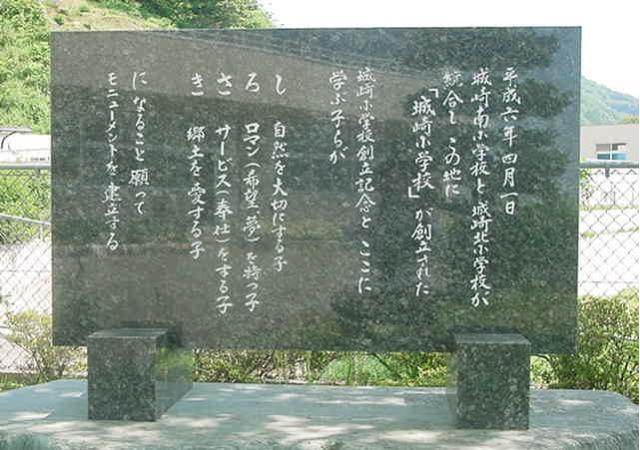 平成六年四月一日
城崎南小学校と城崎北小学校が
統合し この地に
「城崎小学校」が創立された
城崎小学校創立記念と ここに
学ぶ子らが
し 自然を大切にする子
ろ ロマン(希望 夢)を持つ子
さ サービス(奉仕)をする子
き 郷土を愛する子
になること 願って
モニューメントを建立する